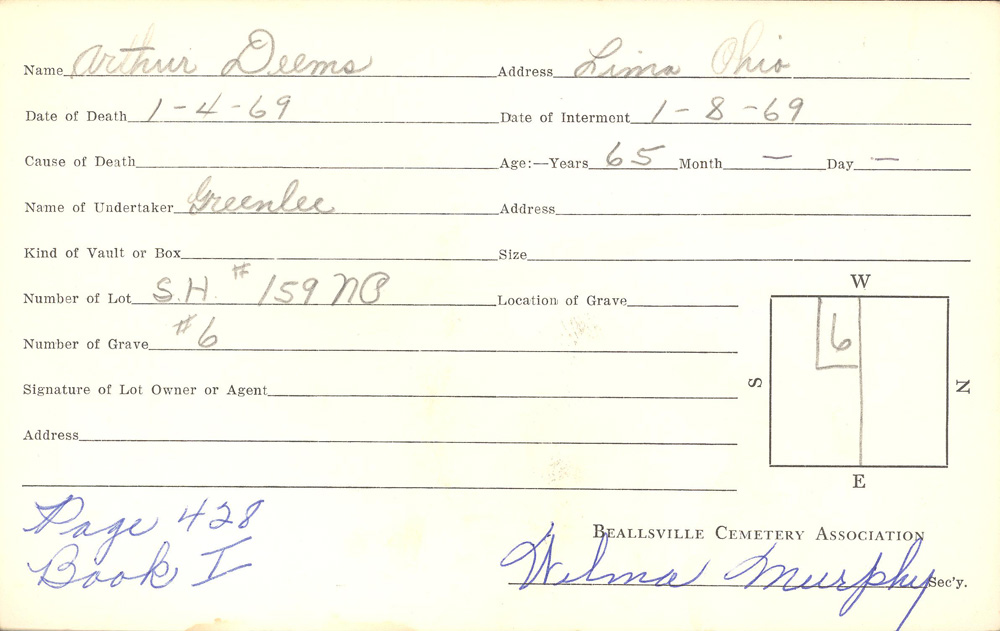 Name Arthur Deems Address Lima Ohio
Date of Death 1-4-69 Date of Interment 1-8-69
Cause of Death Age:—Years 65 Month — Day —
Name of Undertaker Greenlee Address
Kind of Vault or Box Size
Number of Lot S.H. # 159 NP Location of Grave
Number of Grave #6
Signature of Lot Owner or Agent
Address
W
S 6 N
E
Page 428
Book I
Beallsville Cemetery Association
Wilma Murphy Sec'y.